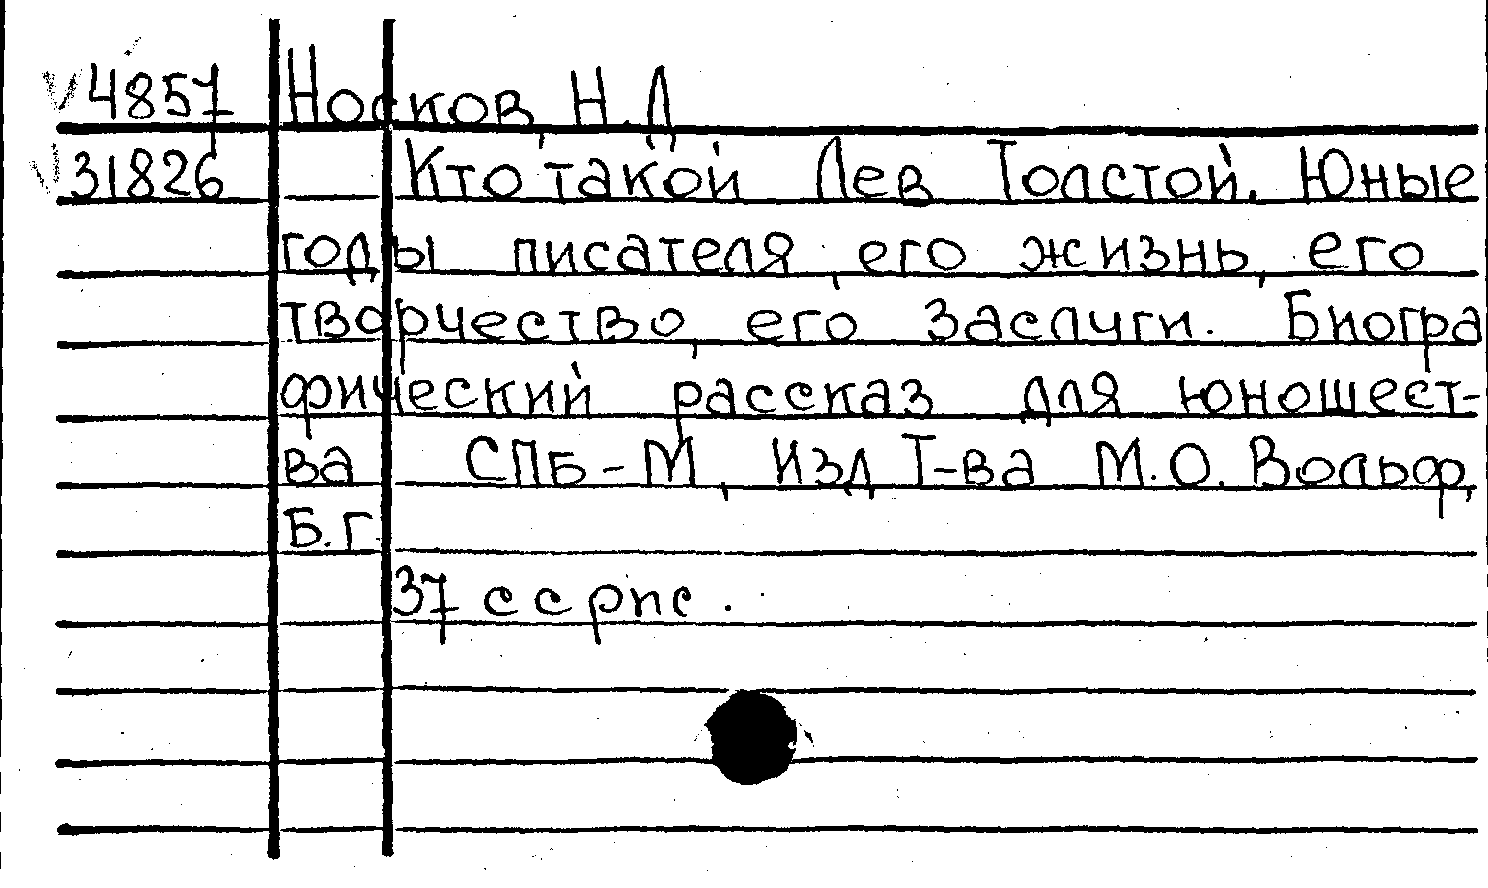 V 4857 Носков, Н.Д
V 31826 Кто такой Лев Толстой. Юные
годы писателя, его жизнь, его
творчество, его заслуги. Биогра
фический рассказ для юношест-
ва СПБ-М, Изд Т-ва М.О. Вольф,
Б.Г.
37 с с рис.